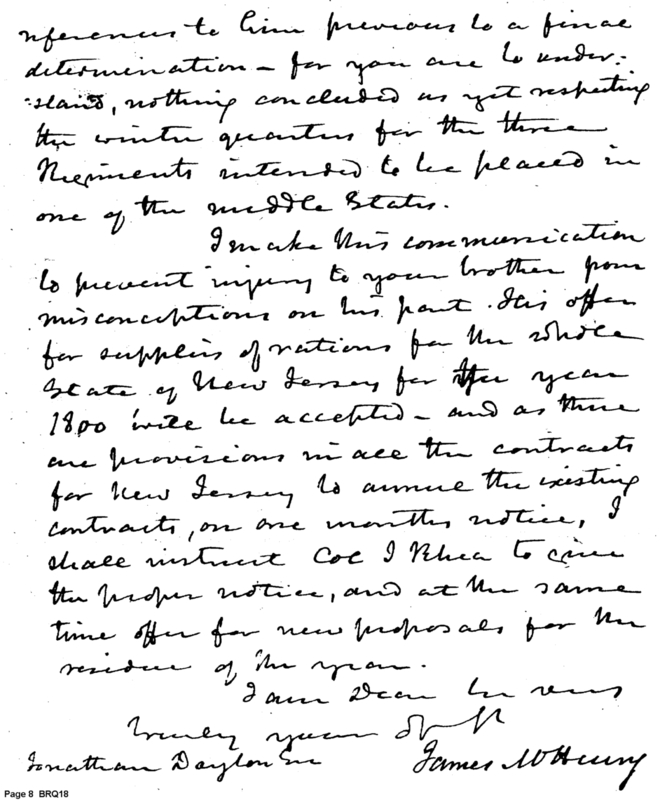 references to him previous to a final
determination – for you are to under-
-stand, nothing concluded as yet respecting
the winter quarters for the three
Regiments intended to be placed in
one of the middle States.
I make this communication
to prevent injury to your brother from
misconceptions on his part. His offer
for supplies of rations for the whole
State of New Jersey for the year
1800 will be accepted – and as there
are provisions in all the contracts
for New Jersey to annul the existing
contracts, on one months notice, I
shall instruct Col J Rhea to give
the proper notice, and at the same
time offer for new proposals for the
residue of the year.
I am Dear Sir very
truly your
Jonathan Dayton Esr
James McHenry
Page 8 BRQ18